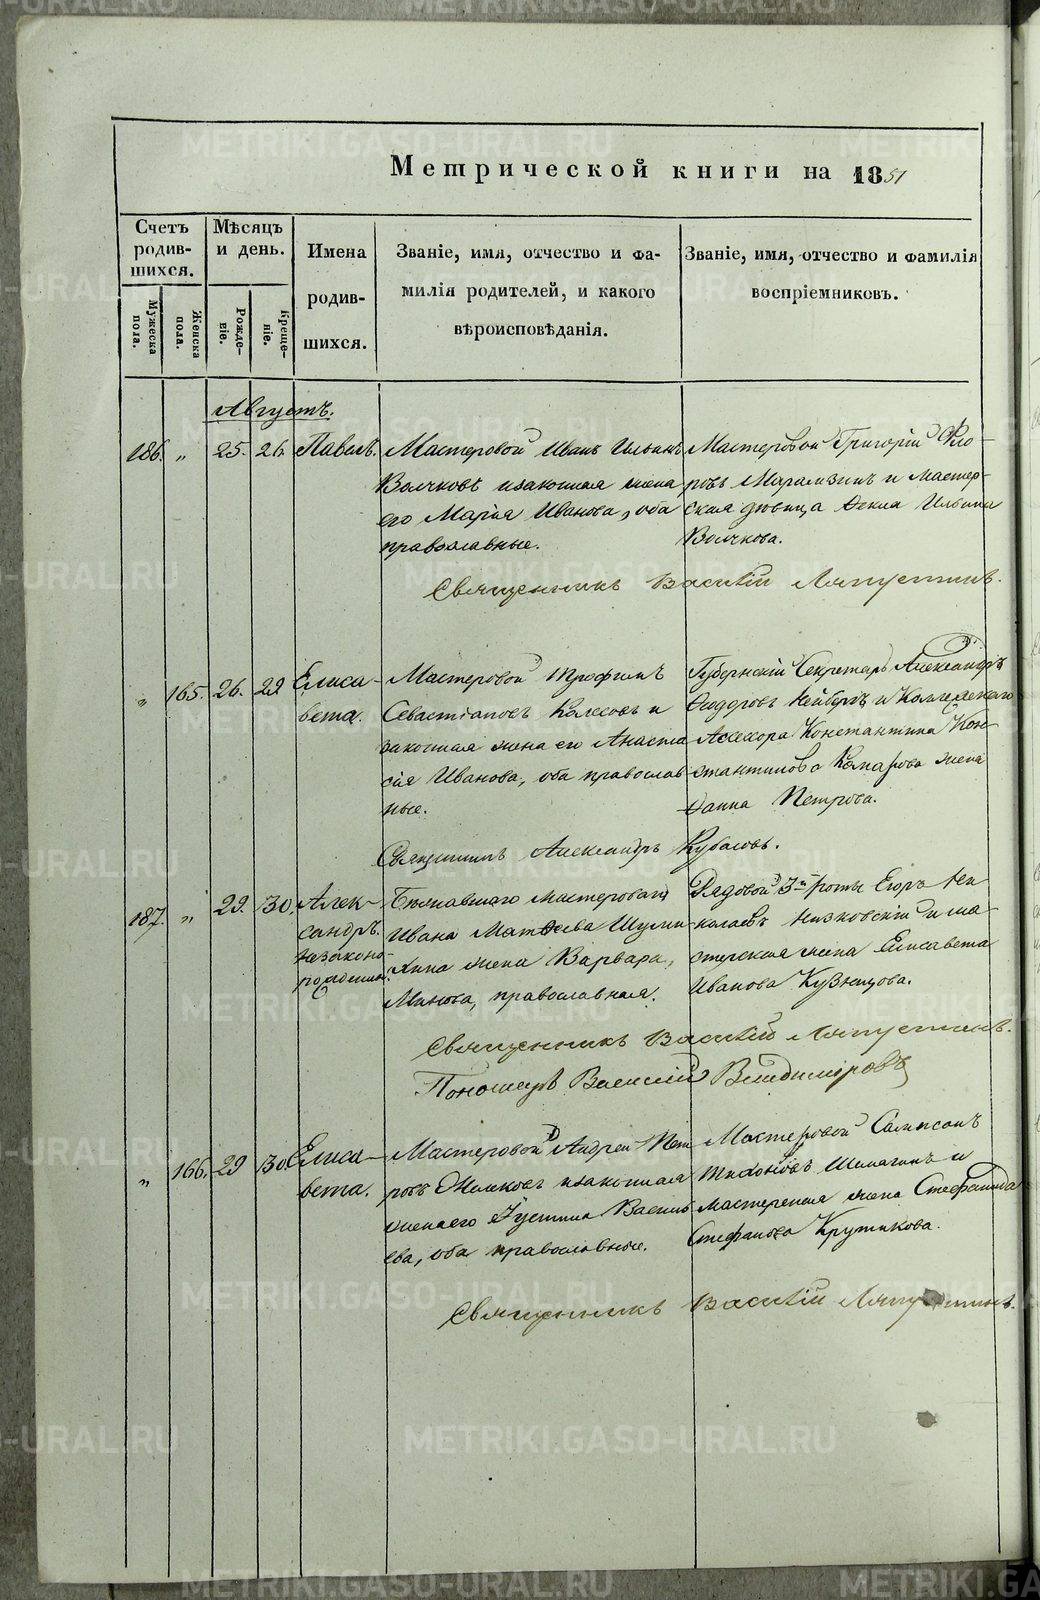 Метрической книги на 1851
Счетъ родив-шихся.
Мужеска пола.
Женска пола.
Мѣсяцъ и день.
Рожде-ніе.
Креще-ніе.
Имена родив-шихся.
Званіе, имя, отчество и фа-
милія родителей, и какого
вѣроисповѣданія.
Званіе, имя, отчество и фамилія
воспріемниковъ.
Августъ.
186. „ 25. 26 Павелъ.
Мастеровой Иванъ Ильинъ
Волчковъ и законная жена
его Марія Иванова, оба
православные.
Мастеровой Григорій Фло-
ровъ и Мастер-
ская дѣвица Ѳекла Ильина
Волчкова.
Священникъ Василій Ляпустинъ.
„ 165. 26. 29 Елиса-
вета.
Мастеровой Трофимъ
Севастіановъ Колесовъ и
законная жена его Анаста
сія Иванова, оба православ
ные.
Губернскій Секретарь Александръ
Ѳедоровъ и Коллежскаго
Ассесора Константина Кон-
стантинова Комарова жена
Анна Петрова.
Священникъ Александръ Кубасовъ.
187. „ 29. 30. Алек-
сандръ.
незаконно-
рожденный.
Бѣжавшаго мастероваго
Ивана Матѳеева
жена Варвара,
православная.
Рядовой 3й роты Егоръ Ни
колаевъ Низковскій и ма-
стерская жена Елисавета
Иванова Кузнецова.
Священникъ Василій Ляпустинъ.
Пономарь Василій Владиміровъ
„ 166. 29 30 Елиса-
вета.
Мастеровой Андрей Пет
ровъ и законная
жена его Іустина Василь
ева, оба православные.
Мастеровой Сампсонъ
Тихоновъ Шемагинъ и
мастерская жена Стефанида
Стефанова Крутикова.
Священникъ Василій Ляпустинъ.
METRIKI.GASO-URAL.RU